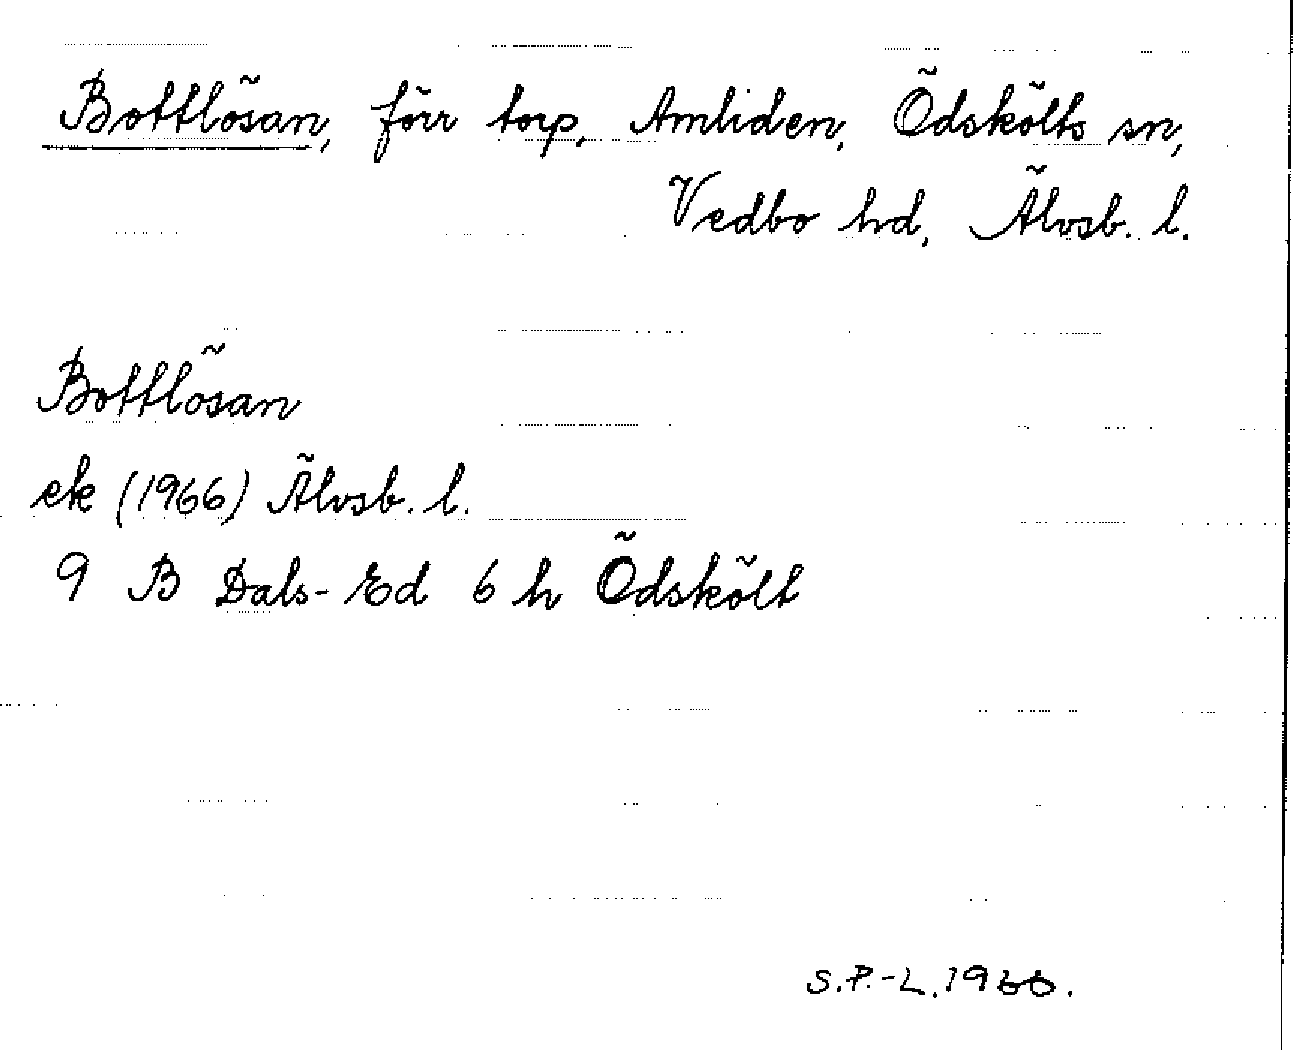 Bottlösan, förr torp, Amliden, Ödskölts sn,
Vedbo hd, Älvsb. l.
Bottlösan
ek (1966) Älvsb. l.
9 B Dals-Ed 6 h Ödskölt
S.P.-L. 1966.